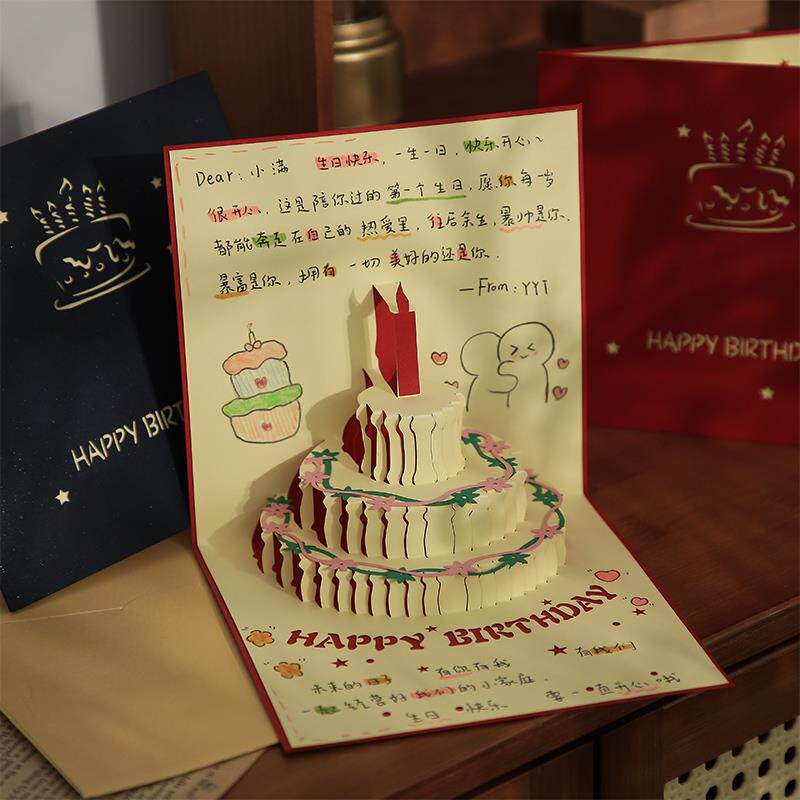 Dear: 小满 生日快乐, 一生一日, 快乐开心~
很开心, 这是陪你过的第一个生日, 愿你每一岁
都能奔走在自己的热爱里, 往后余生, 暴帅是你、
暴富是你, 拥有一切美好的还是你.
—From: YYT
HAPPY BIRTHDAY
有你有我 有我们
未来的日子
一起经营好我们的小家庭. 要一直开心哦
生日快乐
HAPPY BIRT
HAPPY BIRTHD